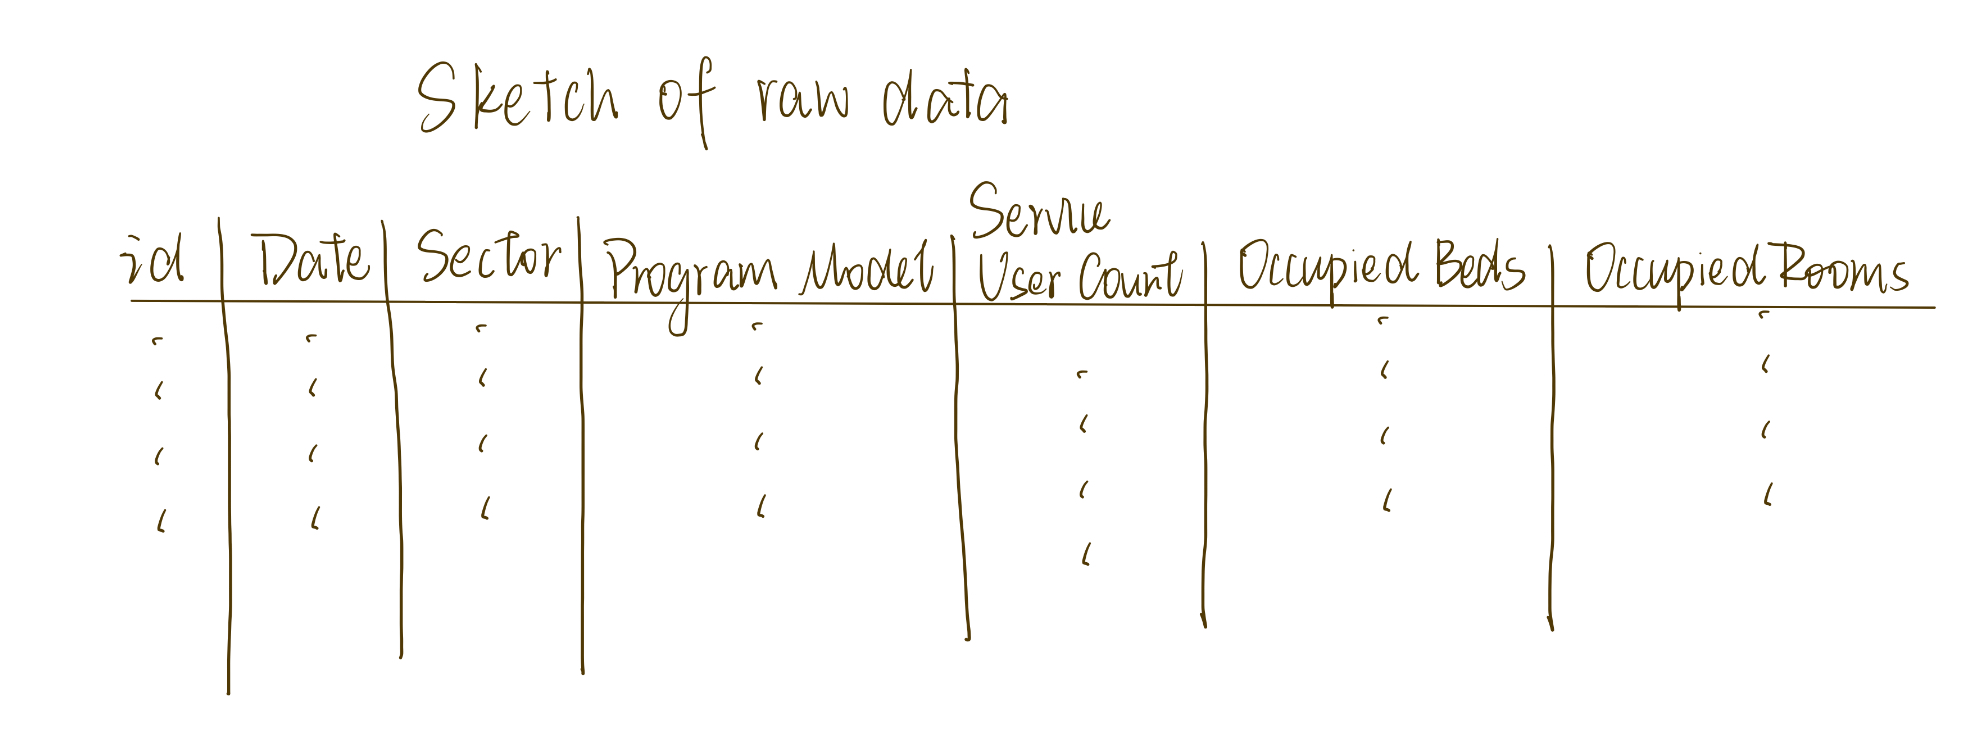 Sketch of raw data
id Date Sector Program Model Service User Count Occupied Beds Occupied Rooms